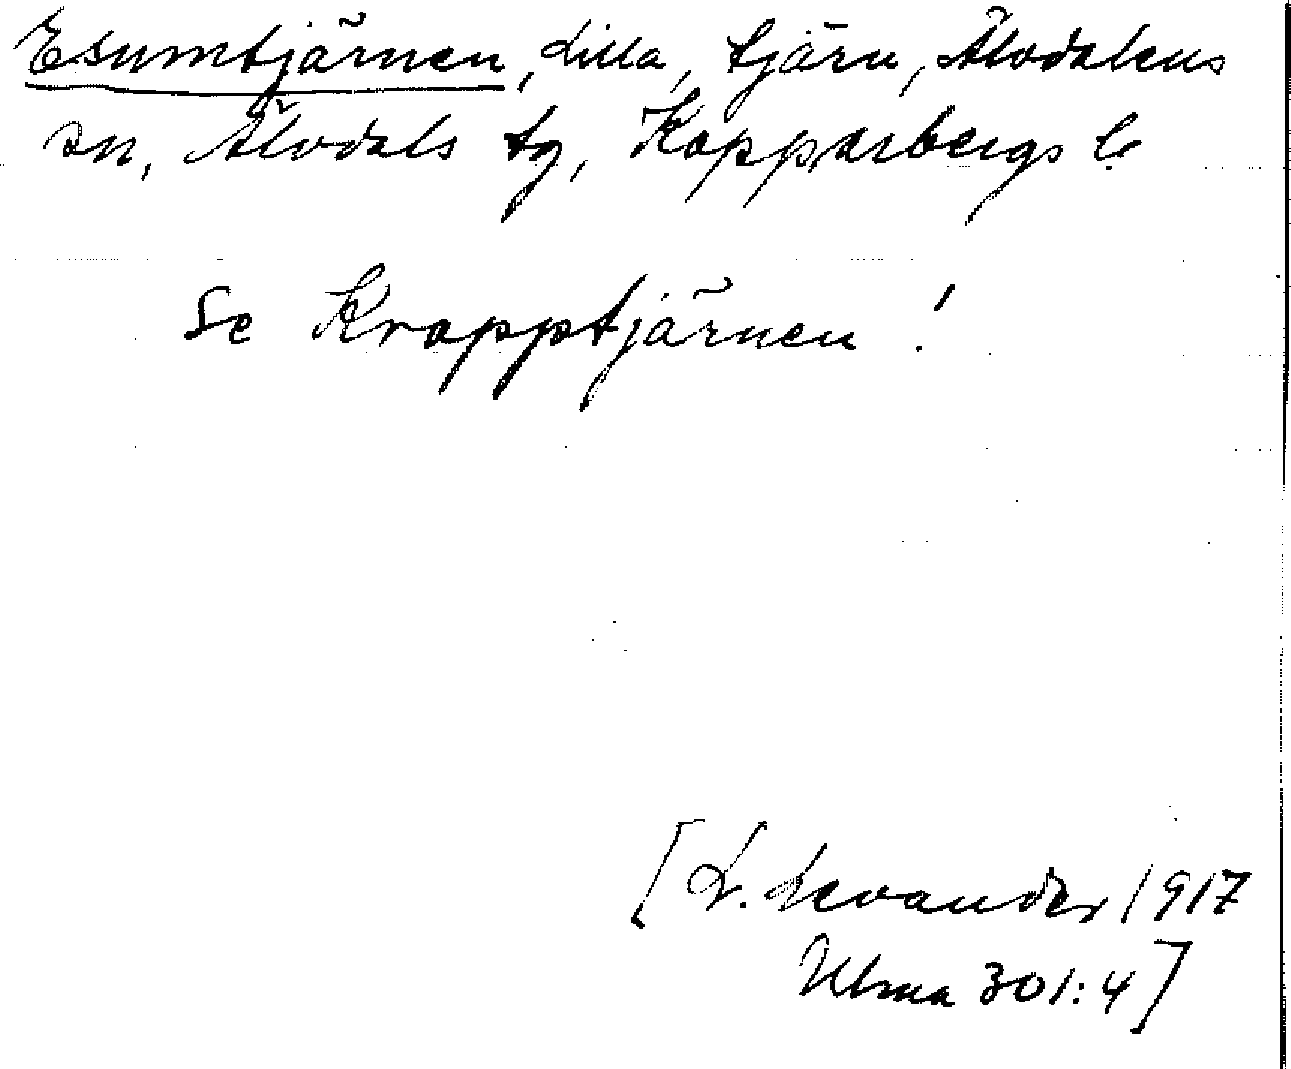 Esumtjärnen, Lilla, tjärn, Älvdalens
sn, Älvdals tg, Kopparbergs l.
Se Kropptjärnen!
[L. Levander 1917
Ulma 301:4]